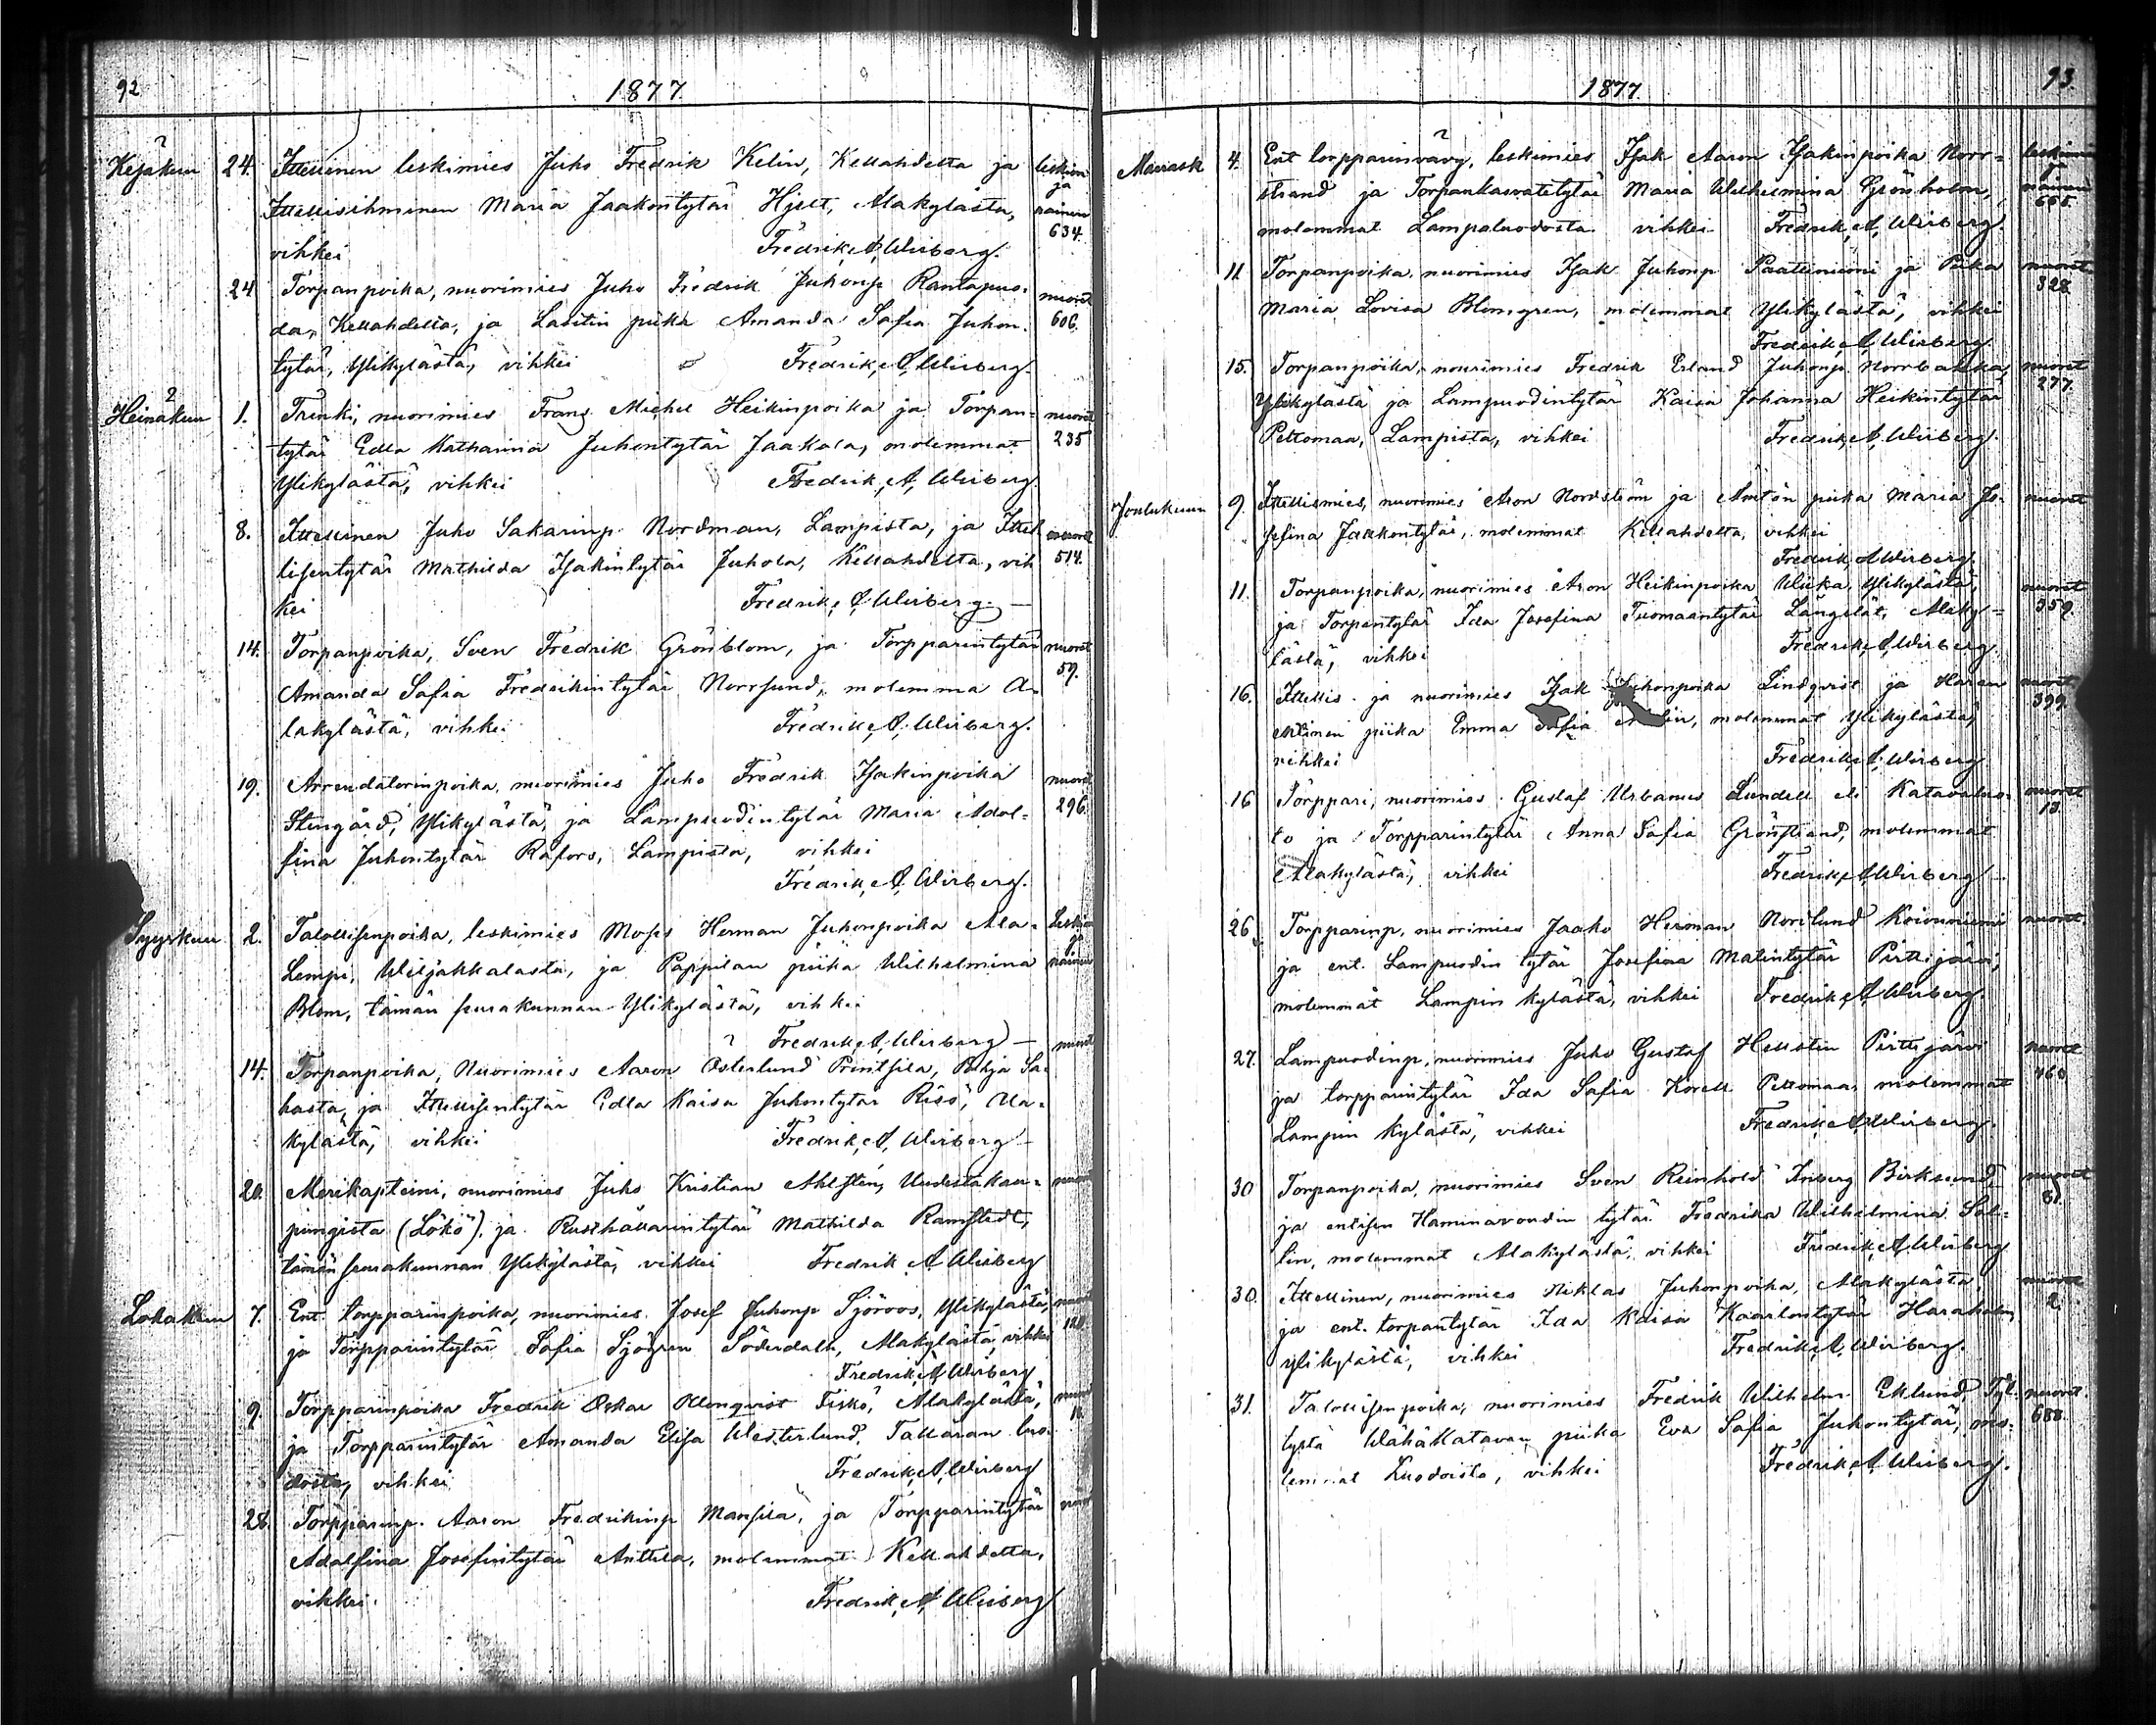 92
1877
Kesäkuu 24. Ittellinen leskimies Juho Fredrik Kelin, Kellahdelta ja leskim
Ittellisihminen Maria Jaakontytär Hjelt, Alakylästä, ja nainen
vihkei Fredrik A Wirberg. 634.
24 Torpanpoika, nuorimies Juho Fredrik Juhonp Rantapuo- nuoret
da, Kellahdelta, ja Lautin piika Amanda Safia Juhon- 606.
tytär, Ylikylästä, vihkei Fredrik, A, Wirberg.
Heinäkuu 1. Trenki, nuorimies Frans Michel Heikinpoika ja Torpan- nuoret
tytär Edla Katharina Juhontytär Jaakola, molemmat 235
Ylikylästä, vihkei Fredrik, A, Wirberg.
8. Ittellinen Juho Sakarinp. Nordman, Lampista, ja Ittel nuoret
lisentytär Mathilda Isakintytär Juhola, Kellahdelta, vih 514.
kei Fredrik, A Wirberg.
14. Torpanpoika, Sven Fredrik Grönblom, ja Torpparintytär nuoret
Amanda Safia Fredrikintytär Norrsund, molemma A- 59.
lakylästä, vihkei Fredrik, A, Wirberg.
19. Arrendatorinpoika, nuorimies Juho Fredrik Isakinpoika nuoret
Stengård, Ylikylästä, ja Lampuodintytär Maria Adol- 296.
fina Juhontytär Rafors, Lampista, vihkei
Fredrik, A, Wirberg.
Syyskuu 2. Talollisenpoika, leskimies Moses Herman Juhonpoika Ala- Leskim
Lempi, Wiljakkalasta, ja Pappilan piika Wilhelmina ja nainen
Blom, tämän seurakunnan Ylikylästä, vihkei
Fredrik A, Wirberg
14. Torpanpoika, Nuorimies Aaron Österlund Printtila, Pohja Sa- nuoret
hasta, ja Ittellisentytär Edla Kaisa Juhontytär Risö, Ala-
kylästä, vihkei Fredrik, A, Wirberg
20. Merikapteini, nuorimies Juho Kristian Ahlsten, Uudestakau- nuoret
pungista (Lökö), ja Rusthållarintytär Mathilda Ramstedt,
tämän seurakunnan Ylikylästä, vihkei Fredrik A Wirberg
Lokakuu 7. Ent. torpparinpoika, nuorimies Josef Juhonp Sjöroos, Ylikylästä, nuoret
ja Torpparintytär Safia Sjögren Söderdahl, Alakylästä, vihkei 120.
Fredrik, A, Wirberg
9. Torpparinpoika Fredrik Oskar Blomqvist Fiskö, Alakylästä,
ja Torpparintytär Amanda Elisa Westerlund, Tallaran luo-
dosta, vihkei Fredrik, A, Wirberg
28. Torpparinp. Aaron Fredrikinp Mansila, ja Torpparintytär
Adalfina Josefintytär Anttila, molemmat Kellahdelta,
vihkei. Fredrik, A, Wirberg
1877.
93.
Marrask 4. Ent torpparinvävy, leskimies Isak Aaron Isakinpoika Norr- leskim
strand ja Torpankasvatetytär Maria Wilhelmina Grönholm, ja nainen
molemmat Lampaluodosta vihkei Fredrik, A, Wirberg. 665.
11 Torpanpoika, nuorimies Isak Juhonp Paatinniemi ja Piika nuoret
Maria Lovisa Blomgren, molemmat Ylikylästä, vihkei 328
Fredrik, A Wirberg
15. Torpanpoika, nuorimies Fredrik Erland Juhonp Norrbacka nuoret
Ylikylästä ja Lampuodintytär Kaisa Johanna Heikintytär 277.
Peltomaa, Lampista, vihkei Fredrik, A, Wirberg.
Joulukuu 9. Ittellismies, nuorimies Aron Nordström ja Anttoin piika Maria Jo- nuoret
sefina Jaakontytär, molemmat Kellahdelta, vihkei
Fredrik, A Wirberg.
11. Torpanpoika, nuorimies Aron Heikinpoika Wiika, Ylikylästä, nuoret
ja Torpantytär Ida Josefina Tuomaantytär Långslät, Alaky- 359.
lästä, vihkei Fredrik, A, Wirberg
16. Ittellis- ja nuorimies Isak Juhonpoika Lindqvist ja nuoret
piika Emma Safia molemmat Ylikylästä, 399.
vihkei Fredrik, A, Wirberg
16 Torppari, nuorimies Gustaf Urbanus Lundell eli Katavaluo- nuoret
to ja Torpparintytär Anna Safia Grönstrand, molemmat 13.
Alakylästä, vihkei Fredrik, A, Wirberg
26. Torpparinp, nuorimies Jaako Herman Norrlund Koivuniemi nuoret
ja ent. Lampuodin tytär Josefina Matintytär Pirttijärvi,
molemmat Lampin kylästä, vihkei Fredrik, A Wirberg.
27. Lampuodinp, nuorimies Juho Gustaf Hellstin Pirttijärvi nuoret
ja torpparintytär Ida Safia Korell Peltomaa, molemmat 460
Lampin kylästä, vihkei Fredrik, A, Wirberg.
30 Torpanpoika, nuorimies Sven Reinhold Inberg Birksund, nuoret
ja entisen Haminavoudin tytär Fredrika Wilhelmina Sal- 81.
lin, molemmat Alakylästä, vihkei Fredrik, A, Wirberg
30. Ittellinen, nuorimies Niklas Juhonpoika, Alakylästä nuoret
ja ent. torpantytär Ida Kaisa Kaarlontytär Haraholm, 2.
ylikylästä, vihkei Fredrik, A, Wirberg.
31. Talollisenpoika, nuorimies Fredrik Wilhelm Eklund, nuoret.
Wähäkatavan piika Eva Safia Juhontytär, mo- 688.
lemmat Luodoista, vihkei Fredrik, A, Wirberg.